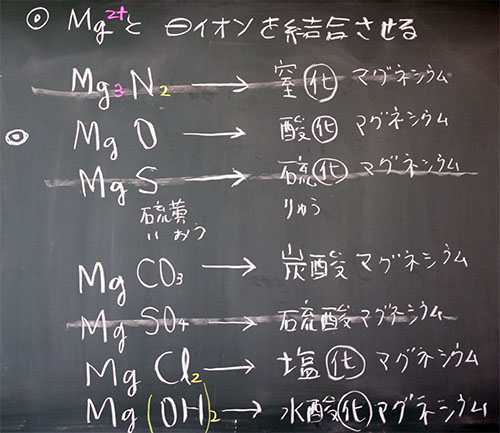 ◎ Mg²⁺と ⊖イオンを結合させる
Mg₃N₂ → 窒化マグネシウム
◎ MgO → 酸化マグネシウム
MgS → 硫化マグネシウム
硫黄 りゅう
いおう
MgCO₃ → 炭酸マグネシウム
MgSO₄ → 硫酸マグネシウム
MgCl₂ → 塩化マグネシウム
Mg(OH)₂ → 水酸化マグネシウム